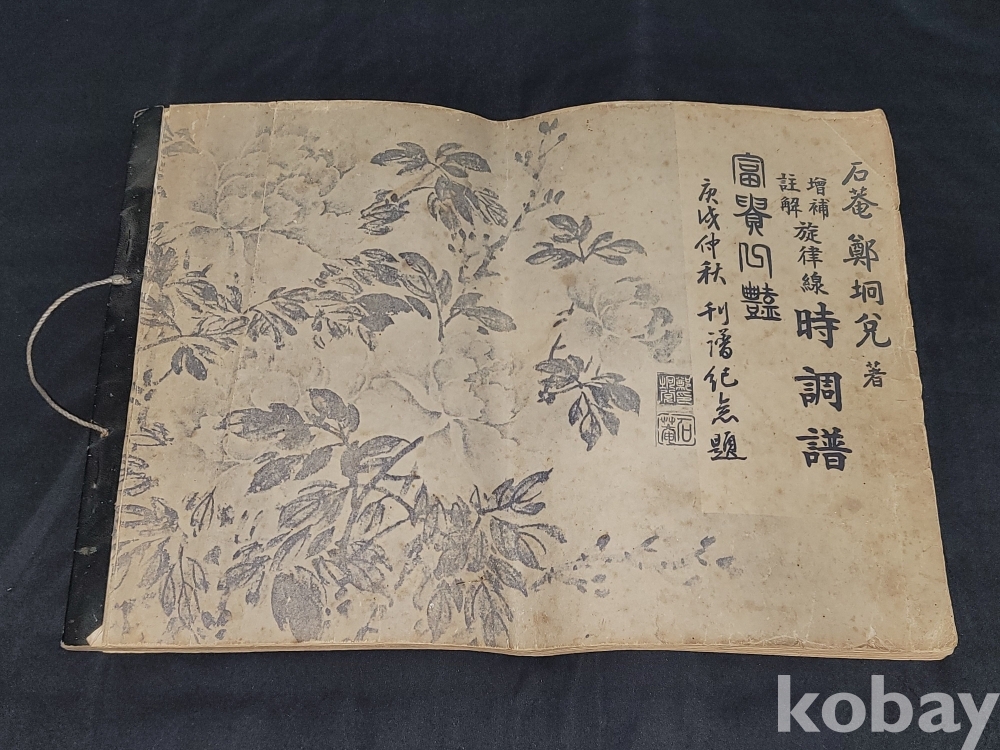 石菴 鄭坰兌 著
增補
註解
旋律線
時調譜
富貴心豔
庚戌仲秋 刊譜紀念題
石菴
kobay